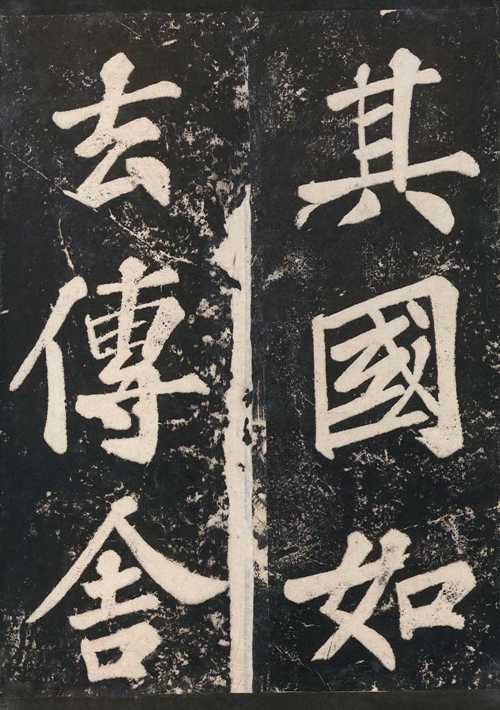 其國如
去傳舍